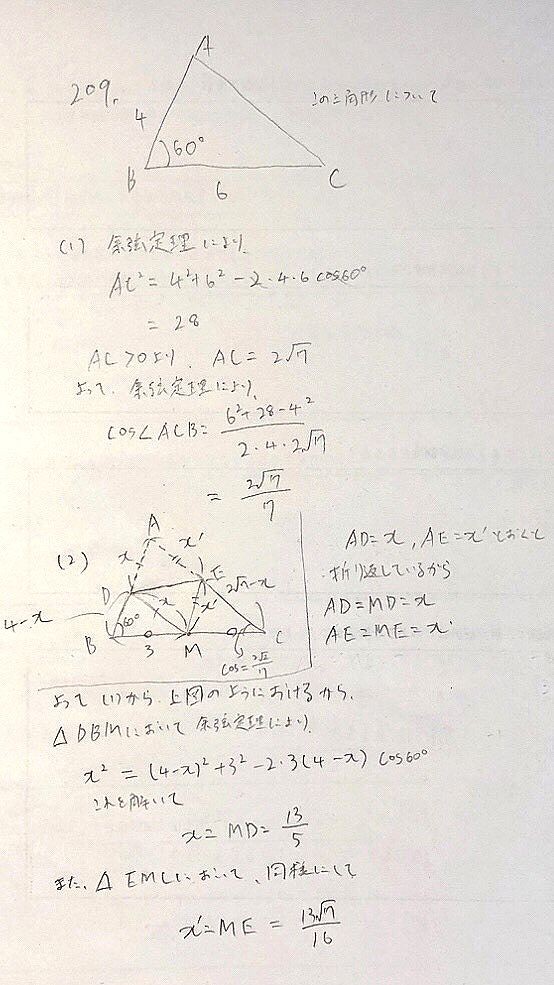 209.
A
4
60°
B
6
C
この三角形について
(1) 余弦定理により、
AC² = 4²+6² - 2・4・6 cos60°
= 28
AC>0より、AC = 2√7
よって、余弦定理により、
cos∠ACB = (6²+28-4²)/(2・4・2√7)
= 2√7/7
(2)
A
x
x'
D
E
4-x
60°
x
x'
2√7-x
B
3
M
C
cos=2√7/7
AD=x, AE=x'とおくと
折り返しているから
AD=MD=x
AE=ME=x'
よって(1)から、上図のようにおけるから、
△DBMにおいて余弦定理により、
x² = (4-x)²+3²-2・3(4-x) cos60°
これを解いて
x = MD = 13/5
また、△EMCにおいて、同様にして
x' = ME = 13√7/16